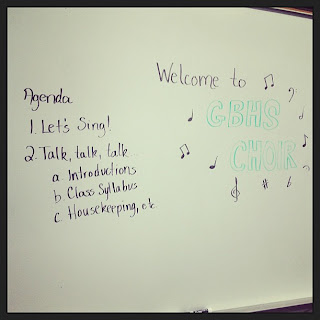 Welcome to
GBHS
CHOIR
Agenda
1. Let's Sing!
2. Talk, talk, talk
a. Introductions
b. Class Syllabus
c. Housekeeping, etc.